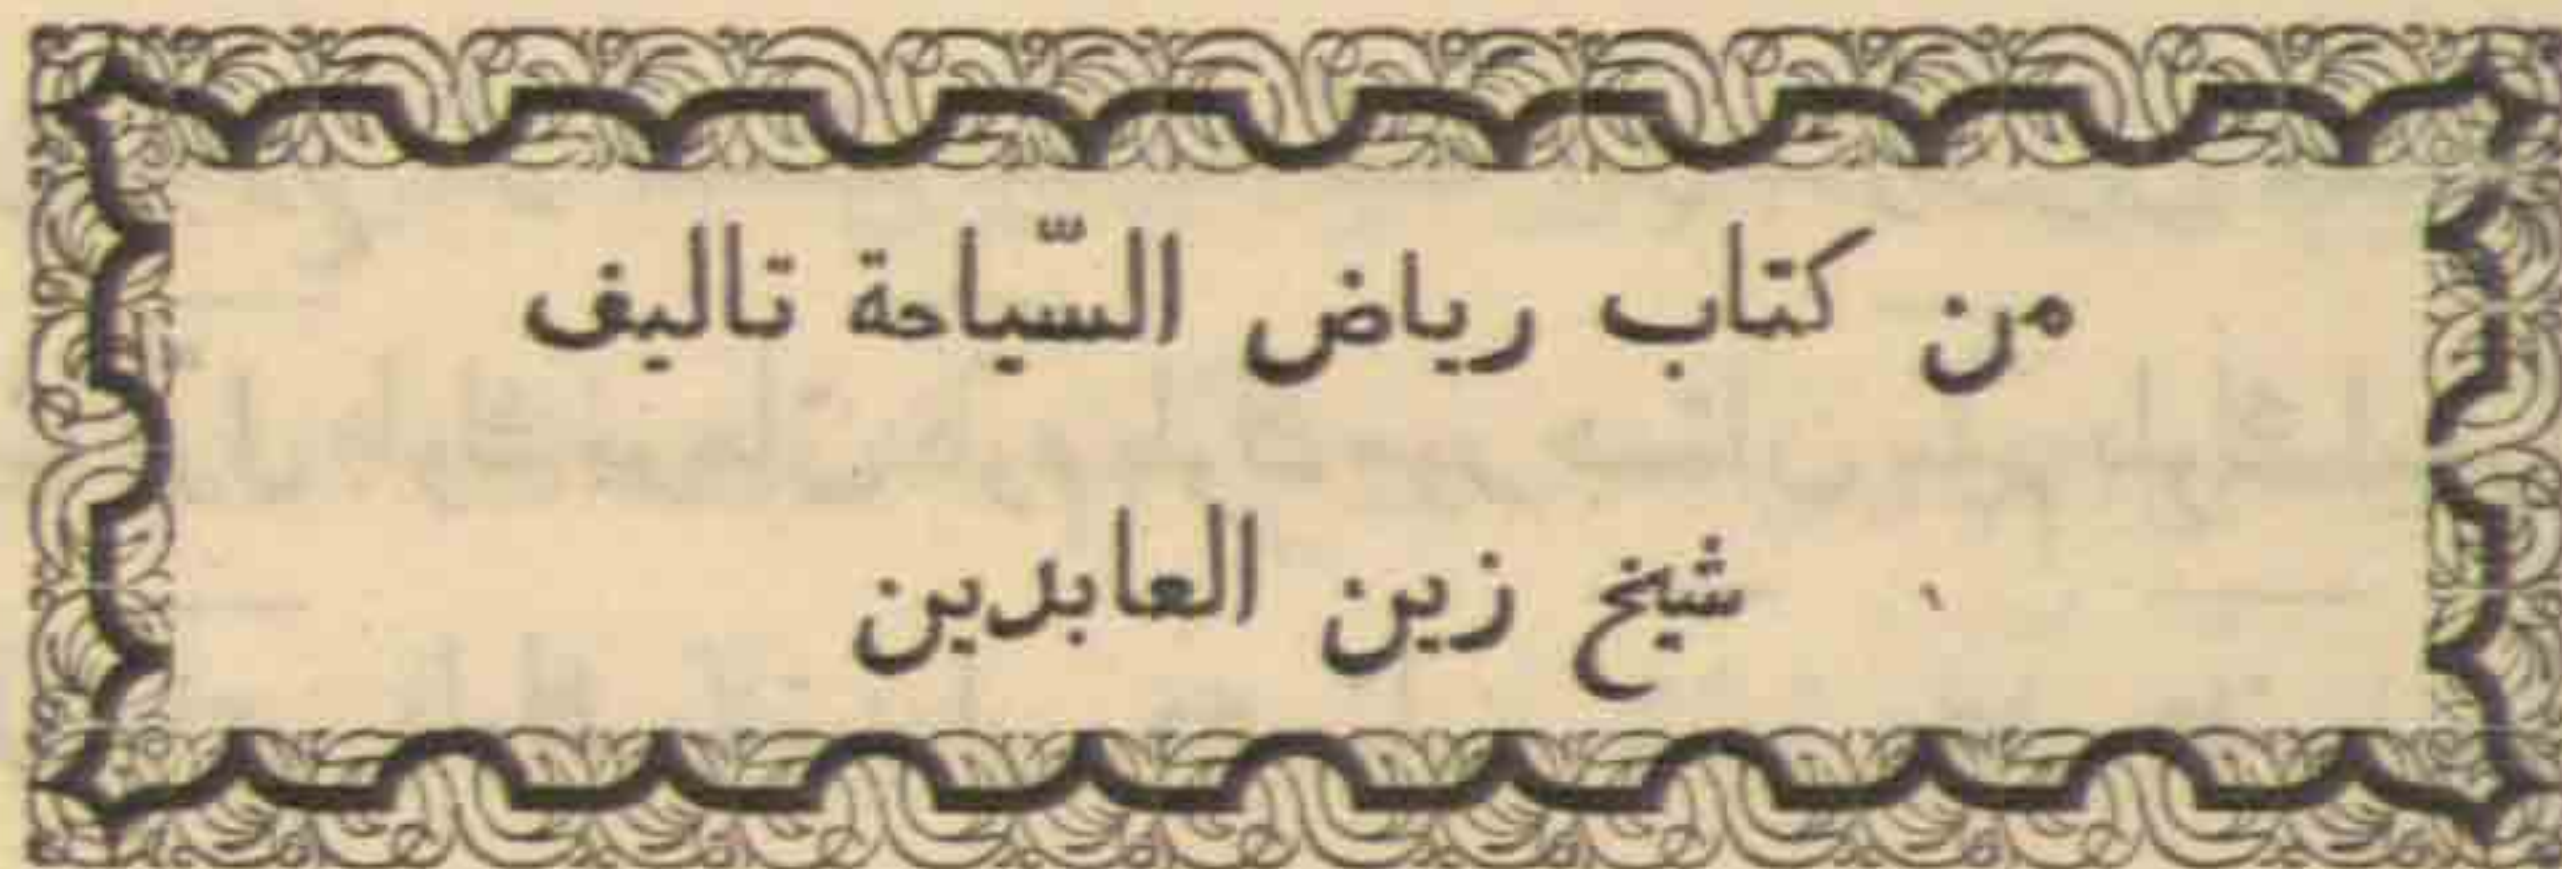 من كتاب رياض السّياحة تاليف
شيخ زين العابدين